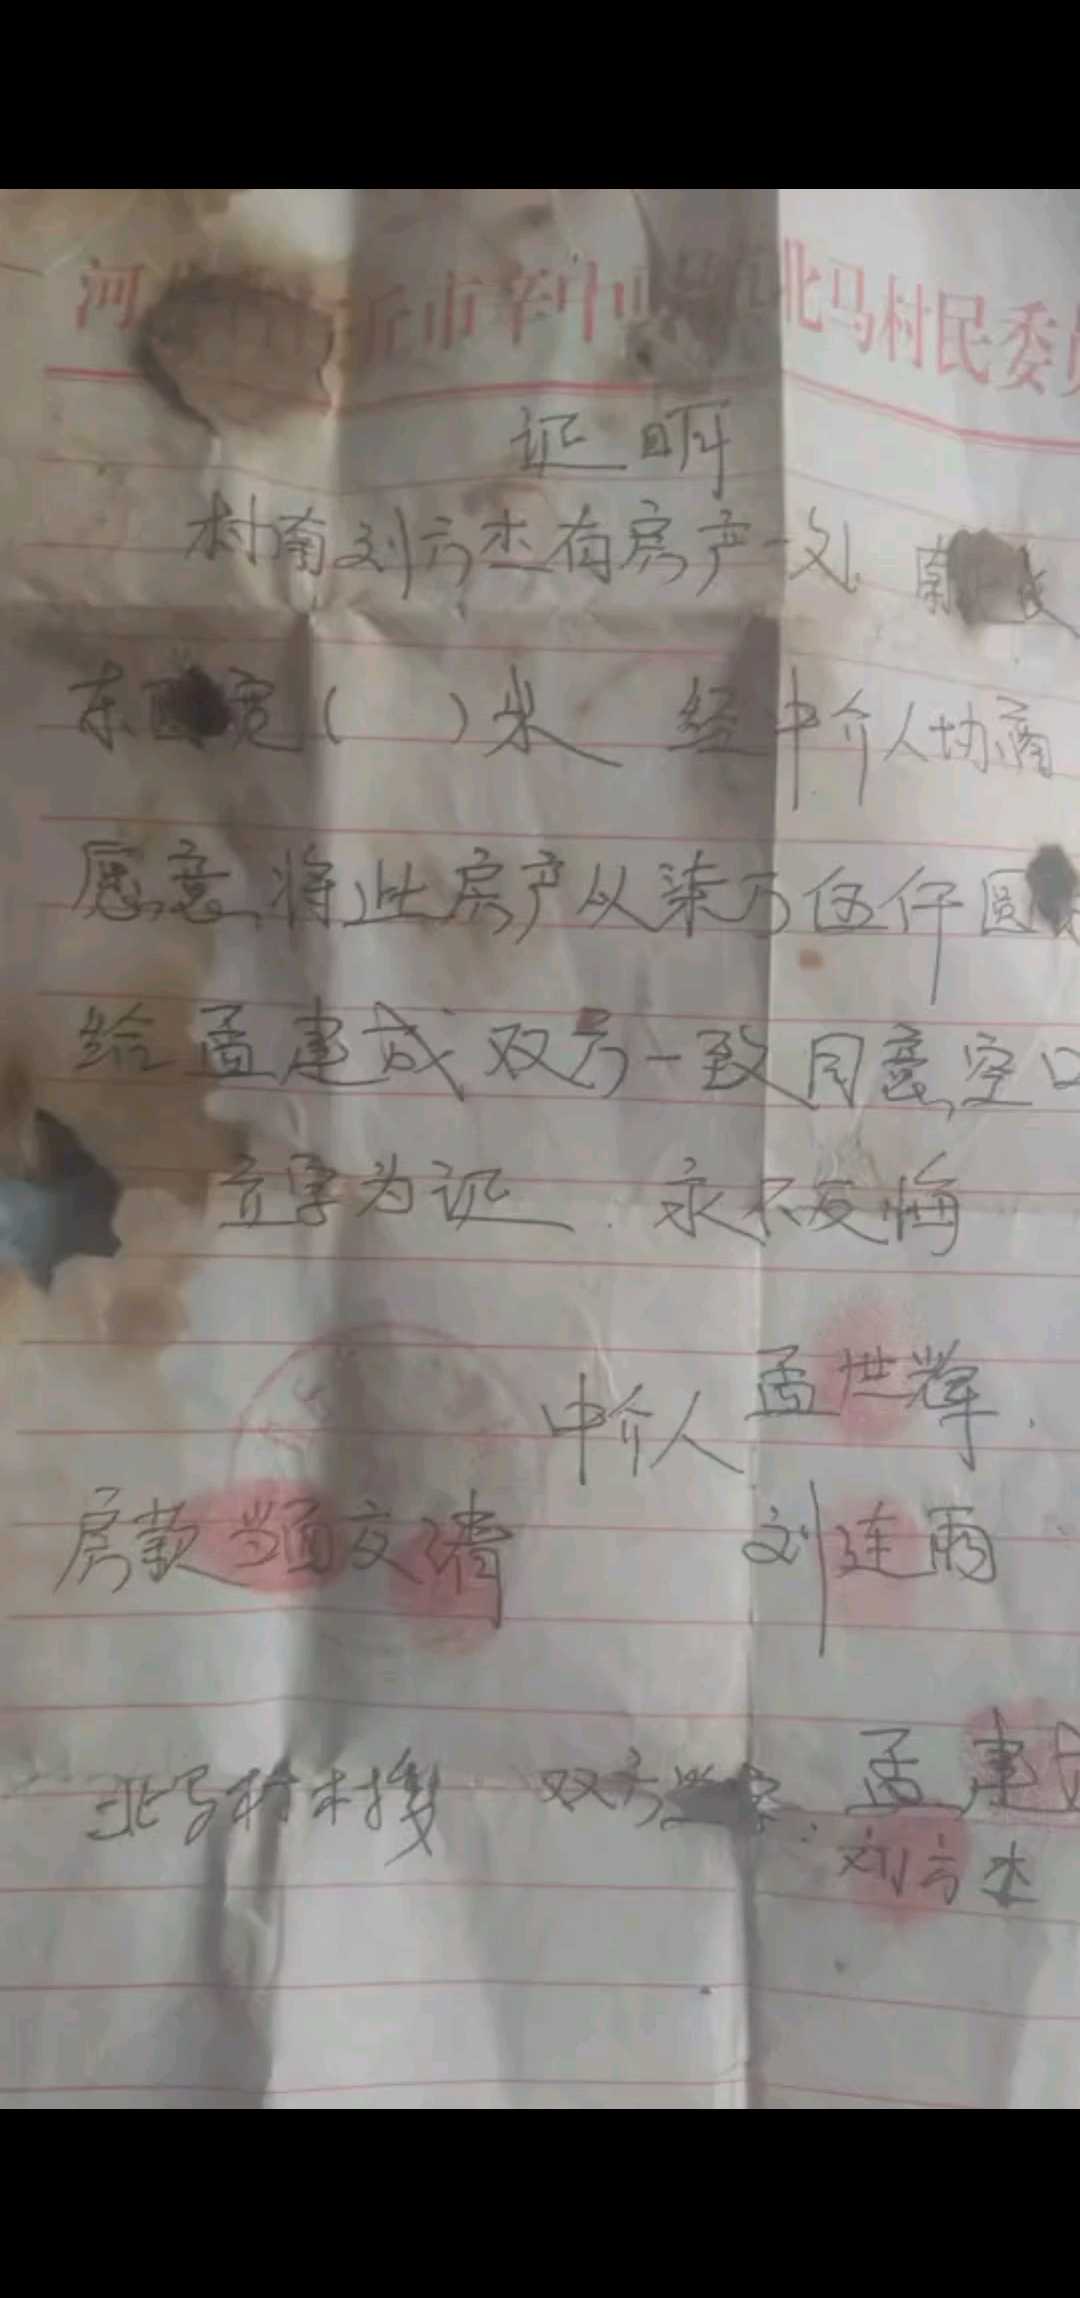 河 丘市辛中 北马村民委员
证明
村南刘六杰有房产一处 南 长
东西宽( )米 经中介人协商
愿意将此房产从柒万伍仟圆
给孟建成双方一致同意空口
立字为证 永不反悔
中介人 孟世辉
房款当面交清 刘连雨
北马村村 双方 字: 孟建成
刘六杰